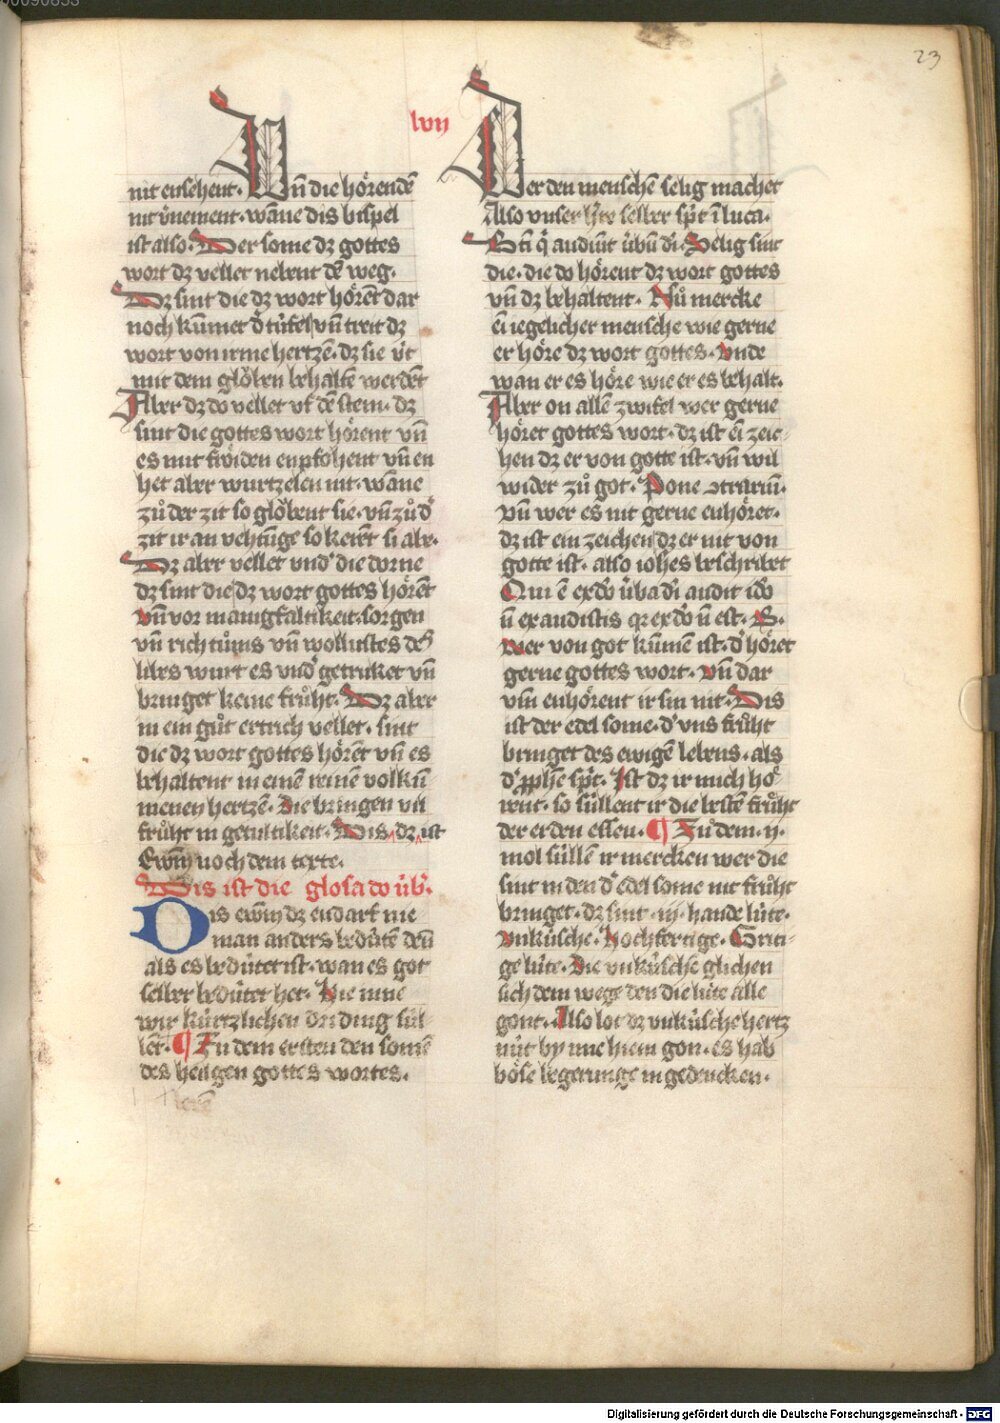 23
lvij
nit ensehent. Vn̄ die hörendē
nit v̄nement. wāne dis bispel
ist also. Der some dz gottes
wort dz vellet nebent dē weg.
Dz sint die dz wort hörēt dar
noch kūmet d̾ tüfel vn̄ treit dz
wort von irme hertzē. dz sie üt
mit dem glöben behaltē werdēt
Aber dz do vellet vf dē stein. dz
sint die gottes wort hörent vn̄
es mit fröiden enpfohent vn̄ en
het aber wurtzelen nit. wāne
zů der zit so glöbent sie. vn̄ zů d̾
zit ir an vehtūge so kerēt si abe.
Dz aber vellet vnd̾ die dorne
dz sint die dz wort gottes hörēt
vn̄ vor manigfaltikeit. sorgen
vn̄ richtůms vn̄ wollustes des
libes wurt es vnd̾ getruket vn̄
bringet keine frůht. Dz aber
in ein gůt ertrich vellet. sint
die dz wort gottes hörēt vn̄ es
behaltent in einē reinē volkū
menen hertzē. die bringen vil
frůht in gedultikeit. Dis. dz ist
Ewm̄ noch dem texte.
Dis ist die glosa do üb̾.
Dis ewm̄ dz endarf nie
man anders bedütē den̄
als es bedütet ist. wan es got
selber bedütet het. Hie inne
wir kürtzlichen dri ding sül
lēt. ¶ Zu dem ersten den somē
des heiligen gottes wortes.
Der den menschē selig machet
Also vnser h̄re selber sp̄t ī luca.
die. die do hörent dz wort gottes
vn̄ dz behaltent. Nů mercke
ei iegelicher mensche wie gerne
er höre dz wort gottes. vnde
wan er es höre wie er es behalt.
Aber on allē zwifel wer gerne
höret gottes wort. dz ist ei zeic-
hen dz er von gotte ist. vn̄ wil
wider zů got. Pone ↄtrariū.
vn̄ wer es nit gerne enhöret.
dz ist ein zeichen dz er nit von
gotte ist. also ioh̄es beschribet
wer von got kūmē ist. d̾ höret
gerne gottes wort. vn̄ dar
vm̄ enhörent ir sin nit. Dis
ist der edel some. d̾ vns frůht
bringet des ewigē lebens. als
ist dz ir mich hö
rent. so süllent ir die bestē frůht
der erden essen. ¶ Zů dem .ij.
mol süllē ir mercken wer die
sint in den d̾ edel some nit frůht
bringet. dz sint .iij. hande lüte.
vnküsche. Hochfertige. Griti-
ge lüte. Die vnküsche glichen
sich dem wege den die lüte alle
gont. Also lot dz vnküsche hertz
nüt by ime hiem gon. es hab
böse begerunge in gedencken.
Digitalisierung gefördert durch die Deutsche Forschungsgemeinschaft - DFG